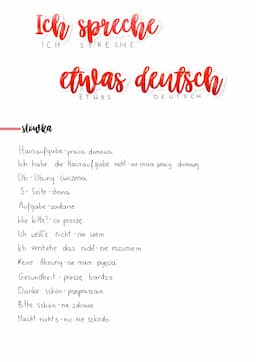 Ich spreche
ICH SPRECHE
etwas deutsch
ETWAS DEUTSCH
słówka
Hausaufgabe - praca domowa
Ich habe die Hausaufgabe nicht - nie mam pracy domowej
Üb - Übung - ćwiczenia
S - Seite - strona
Aufgabe - zadanie
Wie bitte? - co proszę
Ich weiß nicht - nie wiem
Ich verstehe das nicht - nie rozumiem
Keine Ahnung - nie mam pojęcia
Gesundheit - proszę bardzo
Danke schön - przepraszam
Bitte schön - na zdrowie
Macht nichts - nic nie szkodzi